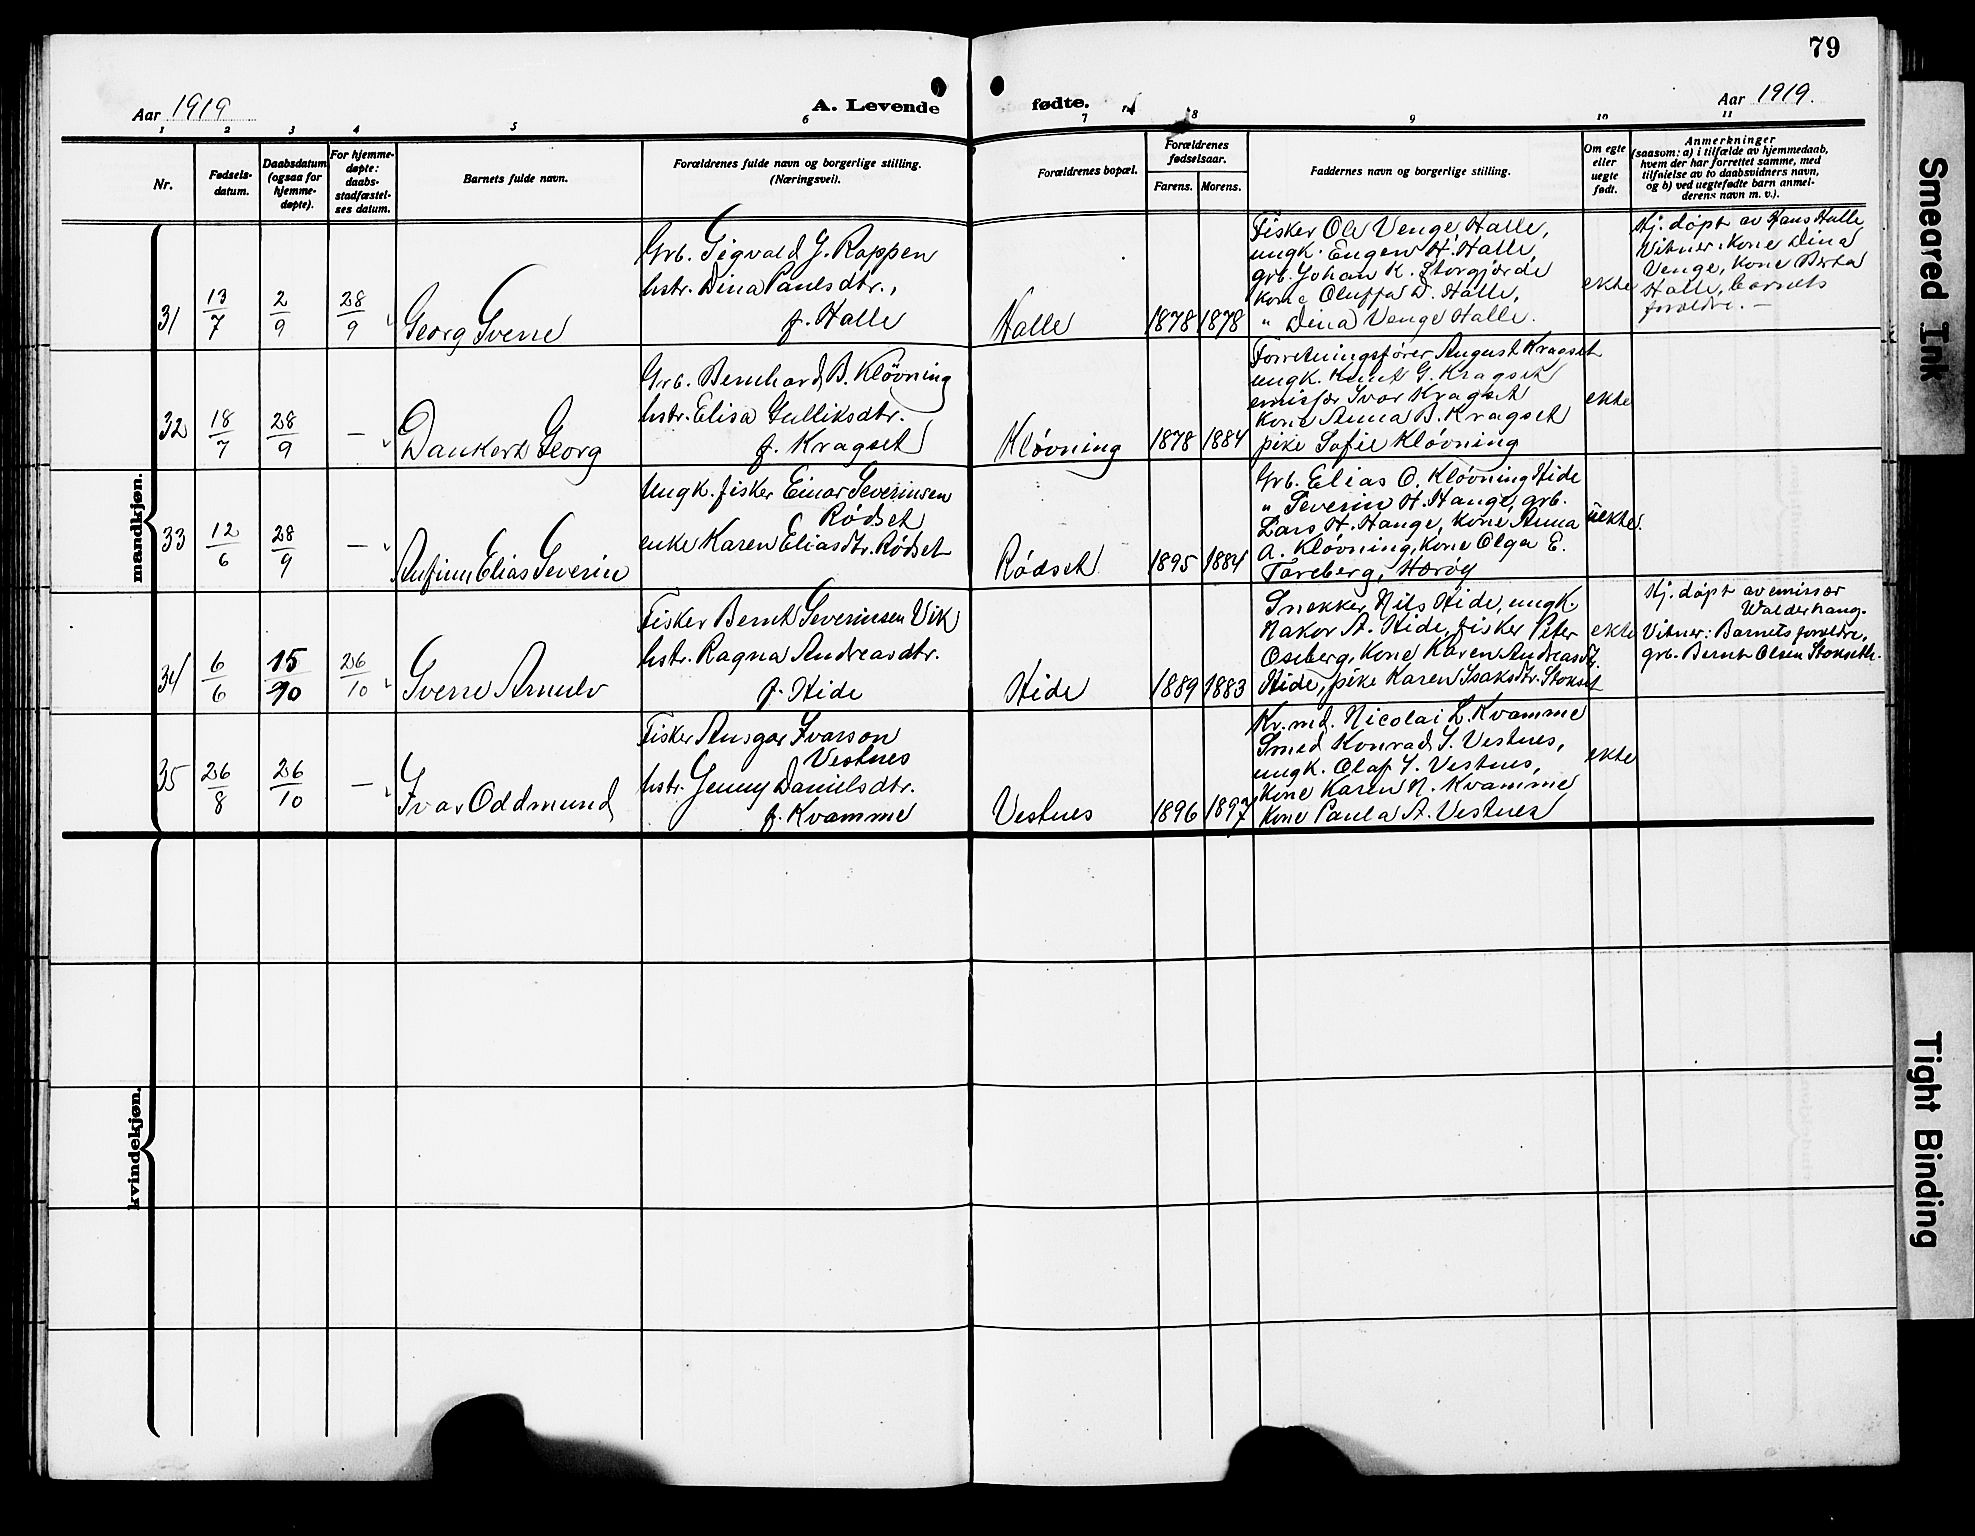 79
Aar 1919
A. Levende
fødte.
Aar 1919.
1 2 3 4 5 6 7 8 9 10 11
Nr.
Fødsels-
datum.
Daabsdatum
(ogsaa for
hjemme-
døpte).
For hjemme-
døpte:
daabs-
stadfæstel-
ses datum.
Barnets fulde navn.
Forældrenes fulde navn og borgerlige stilling.
(Næringsvei).
Forældrenes bopæl.
Forældrenes
fødselsaar.
Farens. Morens.
Faddernes navn og borgerlige stilling.
Om egte
eller
uegte
født.
Anmerkninger
(saasom: a) i tilfælde av hjemmedaab,
hvem der har forrettet samme, med
tilføielse av to daabsvidners navn,
og b) ved uegtefødte barn anmel-
derens navn m. v.).
mandkjøn.
31
13/7
2/9
28/9
Georg Sverre
Grb. Sigvald G. Rappen
hstr. Dina Paulsdtr.,
f. Halle
Halle
1878 1878
Fisker Ole Venge, Halle,
ungk. Eugen H. Halle,
grb. Johan K. Storgjørde
kone Oluffa D. Halle,
" Dina Venge Halle.
ekte
Hj. døpt av Hans Halle
Vitner: Kone Dina
Venge, Kone Berta
Halle, barnets
foreldre. —
32
18/7
28/9
—
Dankert Georg
Grb. Bernhard B. Kløvning
hstr. Elisa Gulliksdtr.
f. Kragset
Kløvning
1878 1884
Forretningsfører August Kragset
ungk. Knut G. Kragset
emissær Ivar Kragset
kone Anna B. Kragset
pike Sofie Kløvning
ekte
33
12/6
28/9
—
Anfinn Elias Severin
Ungk. fisker Einar Severinsen
Rødset
enke Karen Eliasdtr. Rødset
Rødset
1895 1884
Grb. Elias O. Kløvning Hide
" Severin H. Hauge, grb.
Lars H. Hauge, kone Anna
A. Kløvning, kone Olga E.
Tareberg, Herøy
uekte.
34
6/6
15/10
26/10
Sverre Arnulv
Fisker Bernt Severinsen Vik
hstr. Ragna Andreasdtr.
f. Hide
Hide
1889 1883
Snekker Nils Hide, ungk.
Hakon A. Hide, fisker Peter
Oseberg, Kone Karen Andreasdt.
Hide, pike Karen Isaksdtr. Stokset
ekte
Hj. døpt av emissær
Walderhaug.
Vitner: Barnets foreldre,
grb. Bernt Olsen Stokseth.
35
26/8
26/10
—
Ivar Oddmund
Fisker Ansgar Ivarson
Vestnes
hstr. Jenny Danielsdtr.
f. Kvamme
Vestnes
1896 1897
Kv.md. Nicolai L. Kvamme
Smed Konrad S. Vestnes,
ungk. Olaf I. Vestnes,
Kone Karen N. Kvamme
Kone Paula A. Vestnes
ekte
kvindekjøn.
Smeared Ink
Tight Binding